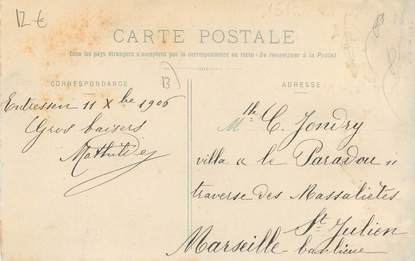 12 €
CARTE POSTALE
Tous les pays étrangers n'acceptent pas la correspondance au recto (Se renseigner à la Poste)
CORRESPONDANCE
Entressen 11 Xbre 1906
Gros baisers
Mathilde
ADRESSE
C. Jondry
villa « le Paradou »
traverse des Massaliètes
St Julien
Marseille banlieue